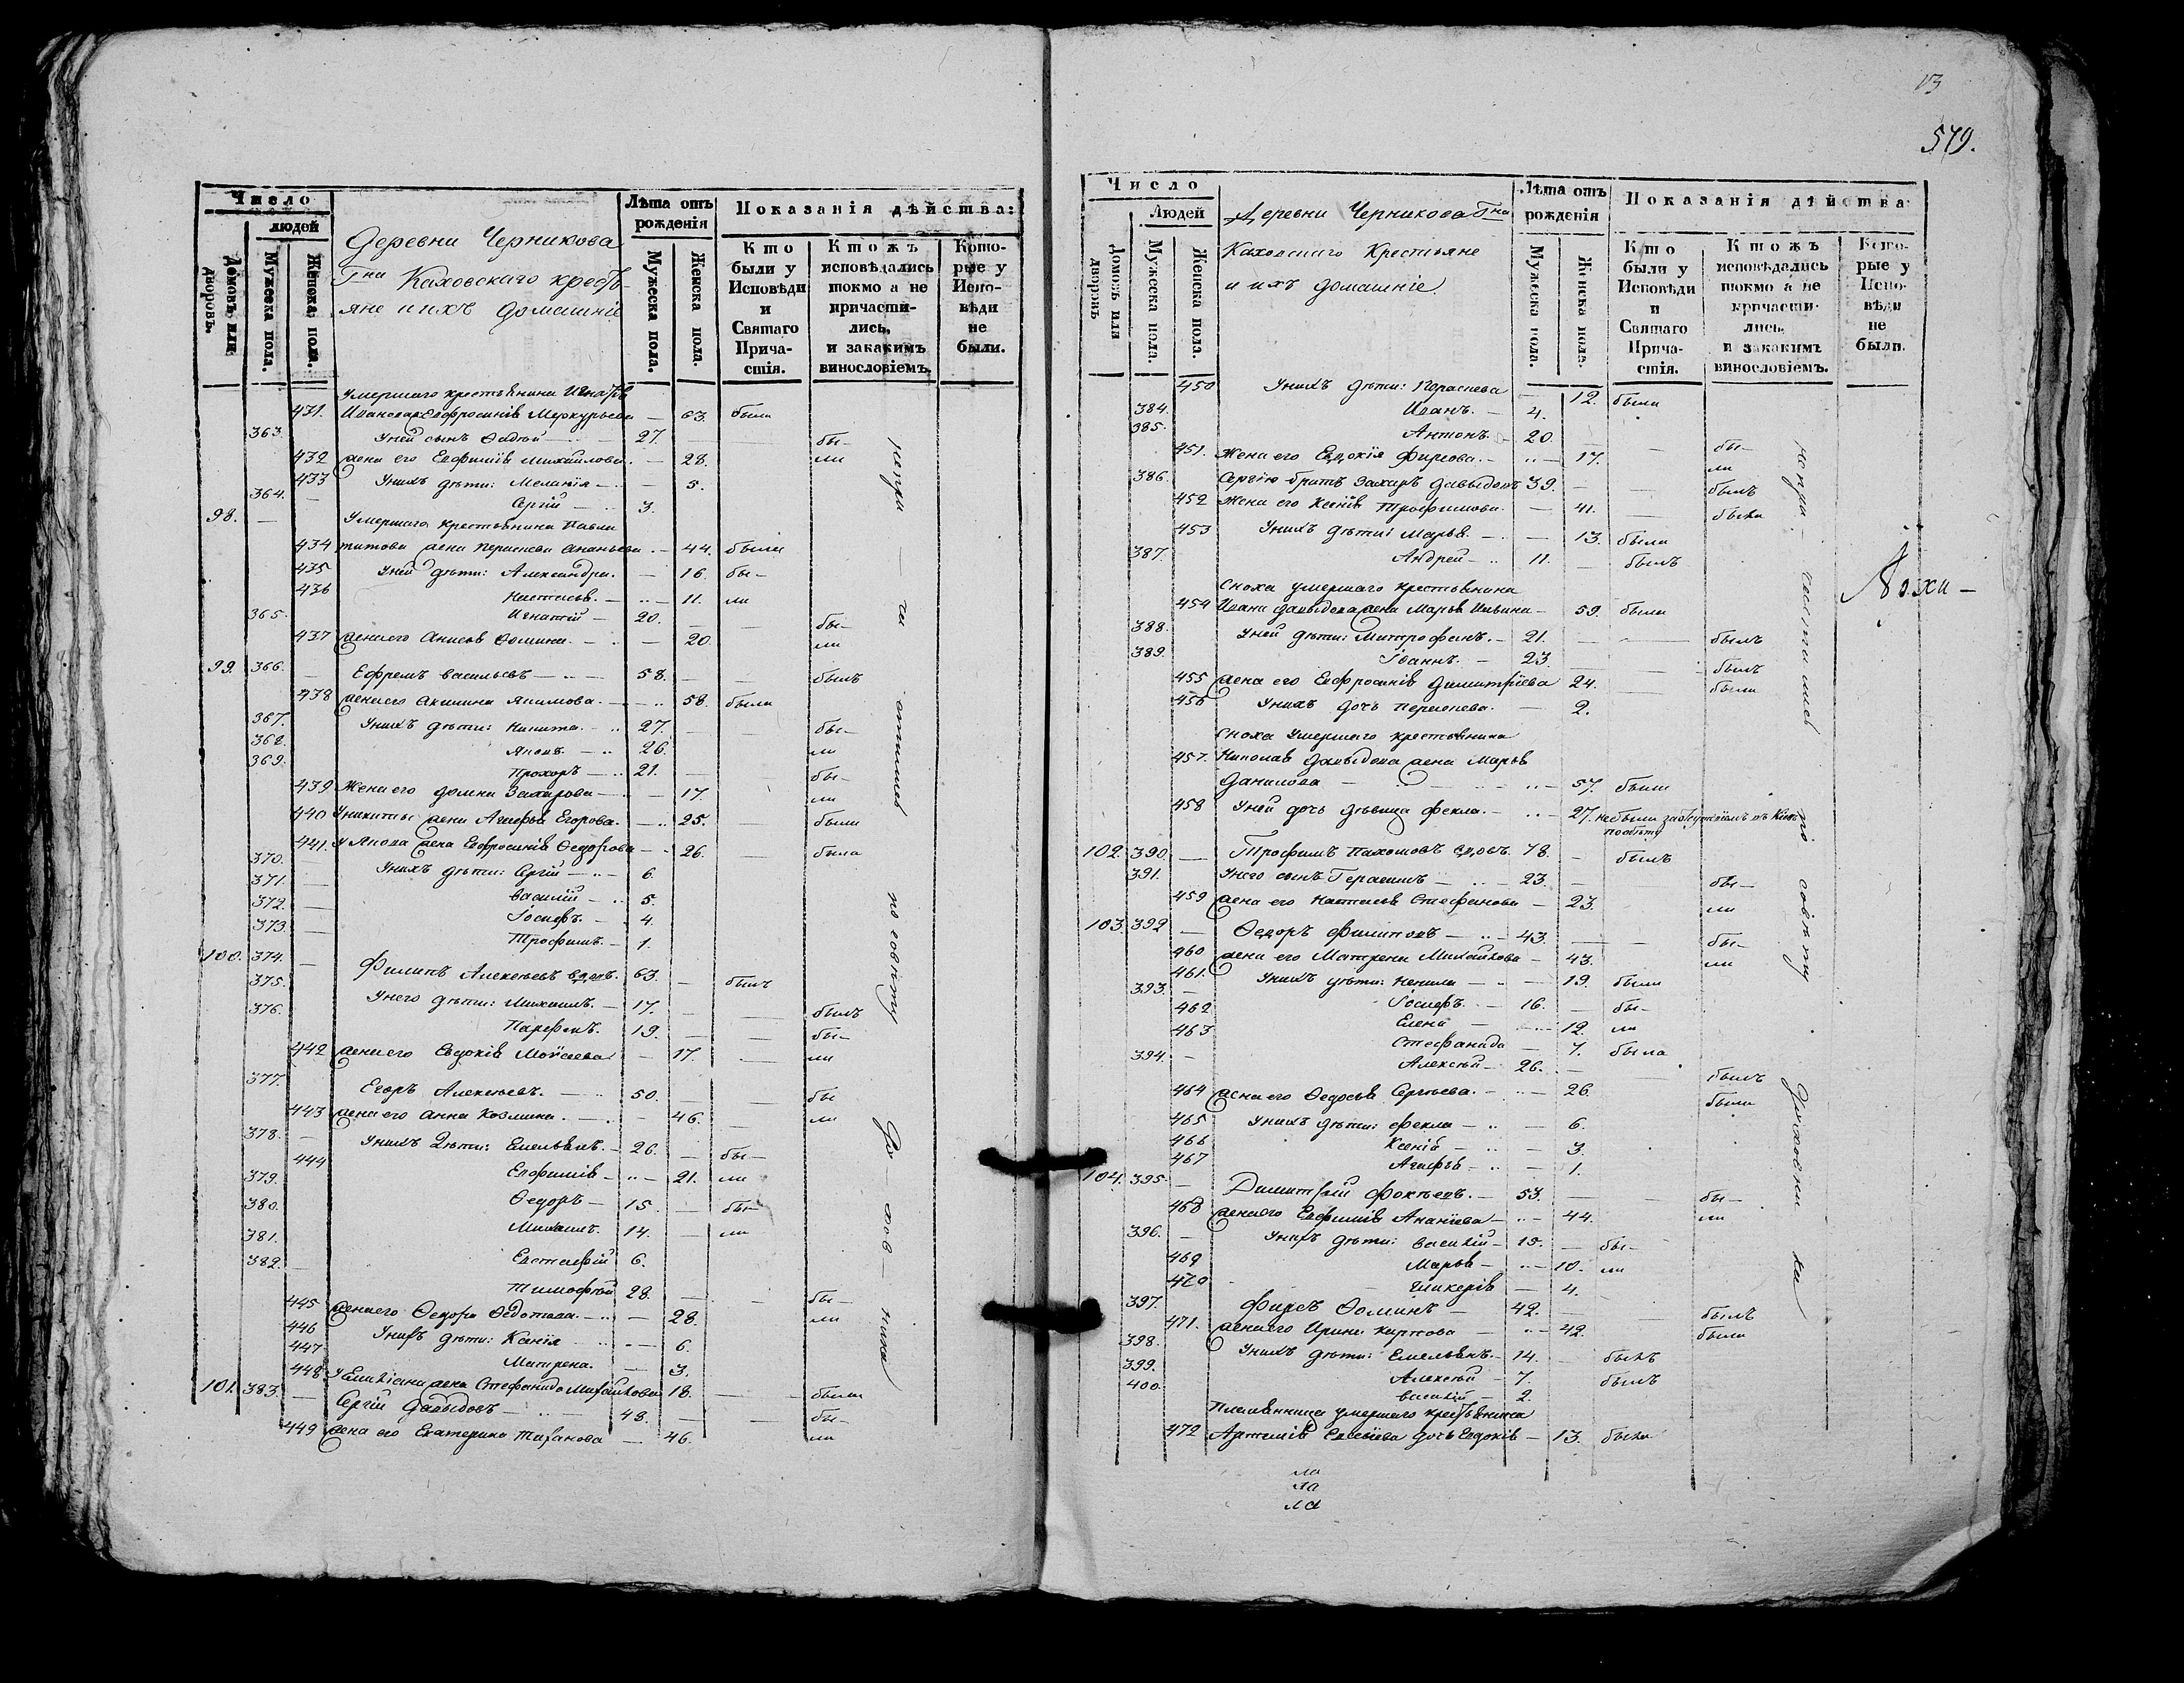 Число
людей
Домовъ или дворовъ.
Мужеска пола.
Женска пола.
Деревни Черникова
Гна Каховскаго кресть-
яне и ихъ домашніе
Лѣта отъ рожденія
Мужеска пола.
Женска пола.
Показанія дѣйства:
Кто были у Исповѣди и Святаго Причастія.
Ктожъ исповѣдались токмо а не причастились, и закакимъ винословіемъ.
Которые у Исповѣди не были.
Умершаго крестьянина Игнатія
431. Иванова жена Евфросинія Меркурьева — 63. была
363. У ней сынъ 27. бы-
432 жена его Евфимія Михайлова. — 28. ли
433 У нихъ дѣти: Меланія — 5.
364. — Сергій — 3.
98. — Умершаго крестьянина Павла
434 Титова жена Ананьева. — 44. была
435 У ней дѣти: Александра. — 16. бы-
436 Настасья. — 11. ли
365. Игнатій — 20. — бы-
437 жена его Анисья Фомина. — 20. ли
99. 366. — Ефремъ Васильевъ — 58. — былъ
438 жена его Акилина Якимова. — 58. была
367. У нихъ дѣти: Никита. — 27. — бы-
368. Яковъ. — 26. ли
369. Прохоръ — 21. — бы-
439 Жена его Домна Захарова — 17. ли
440 У Никиты жена Агафья Егорова. — 25. была
441. У Якова жена Евфросинія Ѳедорова — 26. — была
370. У нихъ дѣти: Сергій — 6.
371. — Василій — 5.
372. — Іосифъ. — 4.
373. — Трофимъ. — 1.
100. 374. — Филипъ Алексѣевъ вдовъ. 63. — былъ
375. У него дѣти: Михаилъ. — 17. — былъ
376. Парфенъ. 19. — бы-
442 жена его Евдокія Моисеева — 17. — ли
377. Егоръ Алексѣевъ. — 50. — бы
443 жена его Анна Козмина. — 46. — ли
378. — У нихъ дѣти: Емельянъ. — 26. — бы-
444 Евфимія — 21. ли
379. Ѳедоръ — 15. — бы-
380. Михаилъ. 14. — ли
381. Евстафій 6.
382. — Тимофей 28. — бы-
445 жена его Ѳедора Ѳедотова. — 28. ли
446 У нихъ дѣти: Ксенія — 6.
447 Матрена. — 3.
448 У Емиліана жена Стефанида Михайлова 18. — была
101. 383. — Сергій Давыдовъ — 48. — бы-
449 жена его Екатерина — 46. ли
по совѣту духовника
13
579.
Число
Людей
Домовъ или дворовъ
Мужеска пола.
Женска пола.
Деревни Черникова Гна
Каховскаго Крестьяне
и ихъ домашніе.
Лѣта отъ рожденія
Мужеска пола.
Женска пола.
Показанія дѣйства
Кто были у Исповѣди и Святаго Причастія.
Ктожъ исповѣдались токмо а не причастились, и закакимъ винословіемъ.
Которые у Исповѣди не были.
450 У нихъ дѣти: — 12. была
384. Иванъ. — 4.
385. Антонъ. 20. — бы-
451. Жена его Евдокія Фирсова. — 17. ли
386. Сергію братъ Захаръ Давыдовъ 39. — былъ
452 Жена его Ксенія Трофимова. — 41. — была
453 У нихъ дѣти: Марья. — 13. была
387. Андрей — 11. — былъ
Сноха умершаго крестьянина
454 Ивана Давыдова жена Марья Ильина — 59. была
388. У ней дѣти: Митрофанъ. — 21. — былъ
389. Іоаннъ. — 23. — былъ
455 жена его Евфросинія Димитріева 24. — была
456 У нихъ дочь — 2.
Сноха умершаго крестьянина
457. Николая Давыдова жена Марья
Данилова — 57. была
458 У ней дочь дѣвица Фекла. — 27. не была
102. 390. — Трофимъ Пахомовъ вдовъ. 78. — былъ
391. У него сынъ Герасимъ — 23. — бы-
459 жена его Настасья Стефанова — 23. ли
103. 392 — Ѳедоръ Филиповъ — 43. — бы-
460 жена его Матрена Михайлова — 43. ли
461. У нихъ дѣти: Ненила — 19. была
393. — Іосифъ. — 16. — бы-
462 Елена — 12. ли
463 Стефанида — 7. была
394. — Алексѣй — 26. — былъ
464 жена его Ѳедосья Сергѣева. — 26. была
465 У нихъ дѣти: Фекла — 6.
466 Ксенія — 3.
467 Агафья — 1.
104. 395. — Димитрій — 53. — бы-
468 жена его Евфимія Ананіева — 44. ли
396. — У нихъ дѣти: Василій — 15. — бы-
469 Марья — 10. ли
470 Гликерія — 4.
397. Фирсъ Ѳоминъ — 42. — былъ
471. жена его Ирина Карпова — 42. была
398. У нихъ дѣти: Емельянъ. — 14. — былъ
399. Алексѣй — 7. былъ
400. Василій — 2.
Племянница умершаго крестьянина
472 Артемія дочь Евдокія — 13. была
по совѣту Духовника
ла
ла
ла